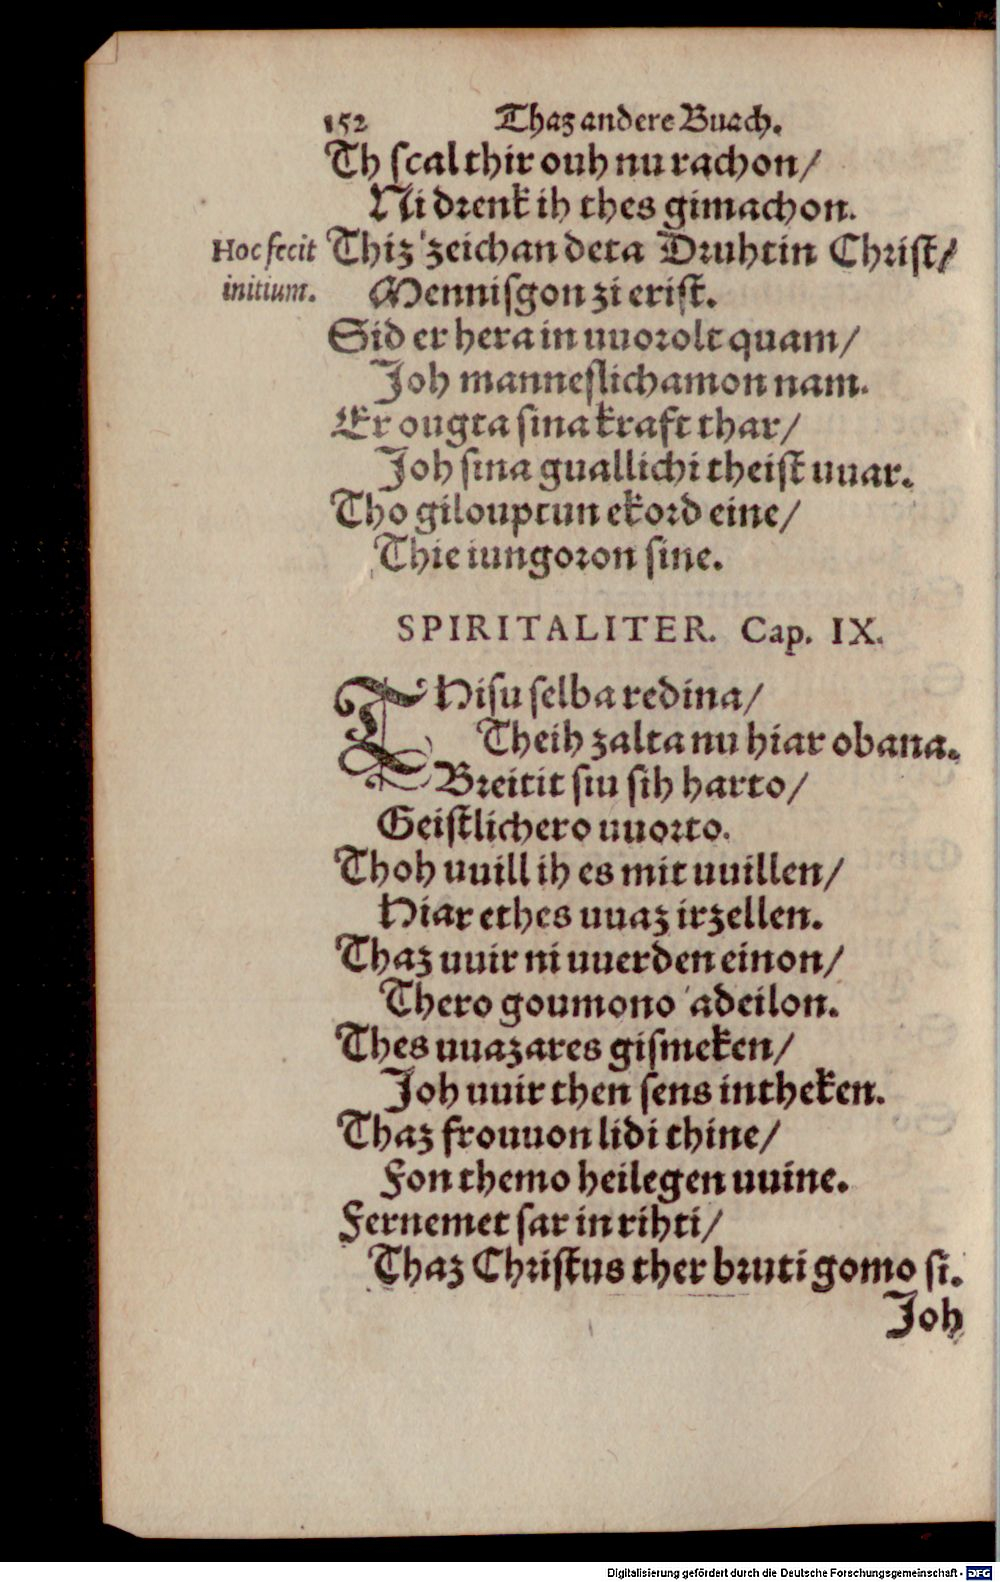 152 Thaz andere Buach.
Th scal thir ouh nu rachon/
Ni drenk ih thes gimachon.
Hoc fecit
initium.
Thiz zeichan deta Druhtin Christ/
Mennisgon zi erist.
Sid er hera in uuorolt quam/
Joh manneslichamon nam.
Er ougta sina kraft thar/
Joh sina guallichi theist uuar.
Tho giloupcun ekord eine/
Thie iungoron sine.
SPIRITALITER. Cap. IX.
THisu selba redina/
Theih zalta nu hiar obana.
Breitit siu sih harto/
Geistlichero uuorto.
Thoh uuill ih es mit uuillen/
Hiar ethes uuaz irzellen.
Thaz uuir ni uuerden einon/
Thero goumono adeilon.
Thes uuazares gismeken/
Joh uuir then sens intheken.
Thaz frouuon lidi thine/
Fon themo heilegen uuine.
Fernemet sar in rihti/
Thaz Christus ther bruti gomo si.
Joh
Digitalisierung gefördert durch die Deutsche Forschungsgemeinschaft - DFG